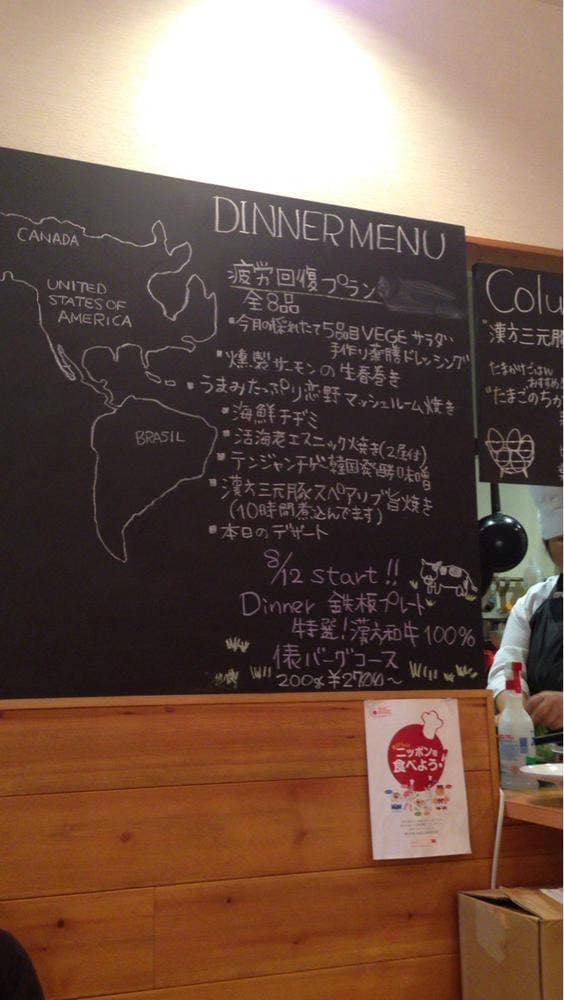 DINNER MENU
疲労回復プラン
全8品
今月の採れたて5品目VEGEサラダ
手作り薬膳ドレッシング
燻製サーモンの生春巻き
うまみたっぷり恋野マッシュルーム焼き
海鮮チヂミ
活海老エスニック焼き(2尾付)
テンジャンチゲ 韓国発酵味噌
漢方三元豚スペアリブ旨焼き
(10時間煮込んでます)
本日のデザート
8/12 start!!
Dinner 鉄板プレート
特選!漢方和牛100%
俵バーグコース
200g ¥2700〜
CANADA
UNITED
STATES OF
AMERICA
BRASIL
Colu
漢方三元豚
たまかけごはん
おすすめ!
"たまごのちか
ニッポンを
食べよう!